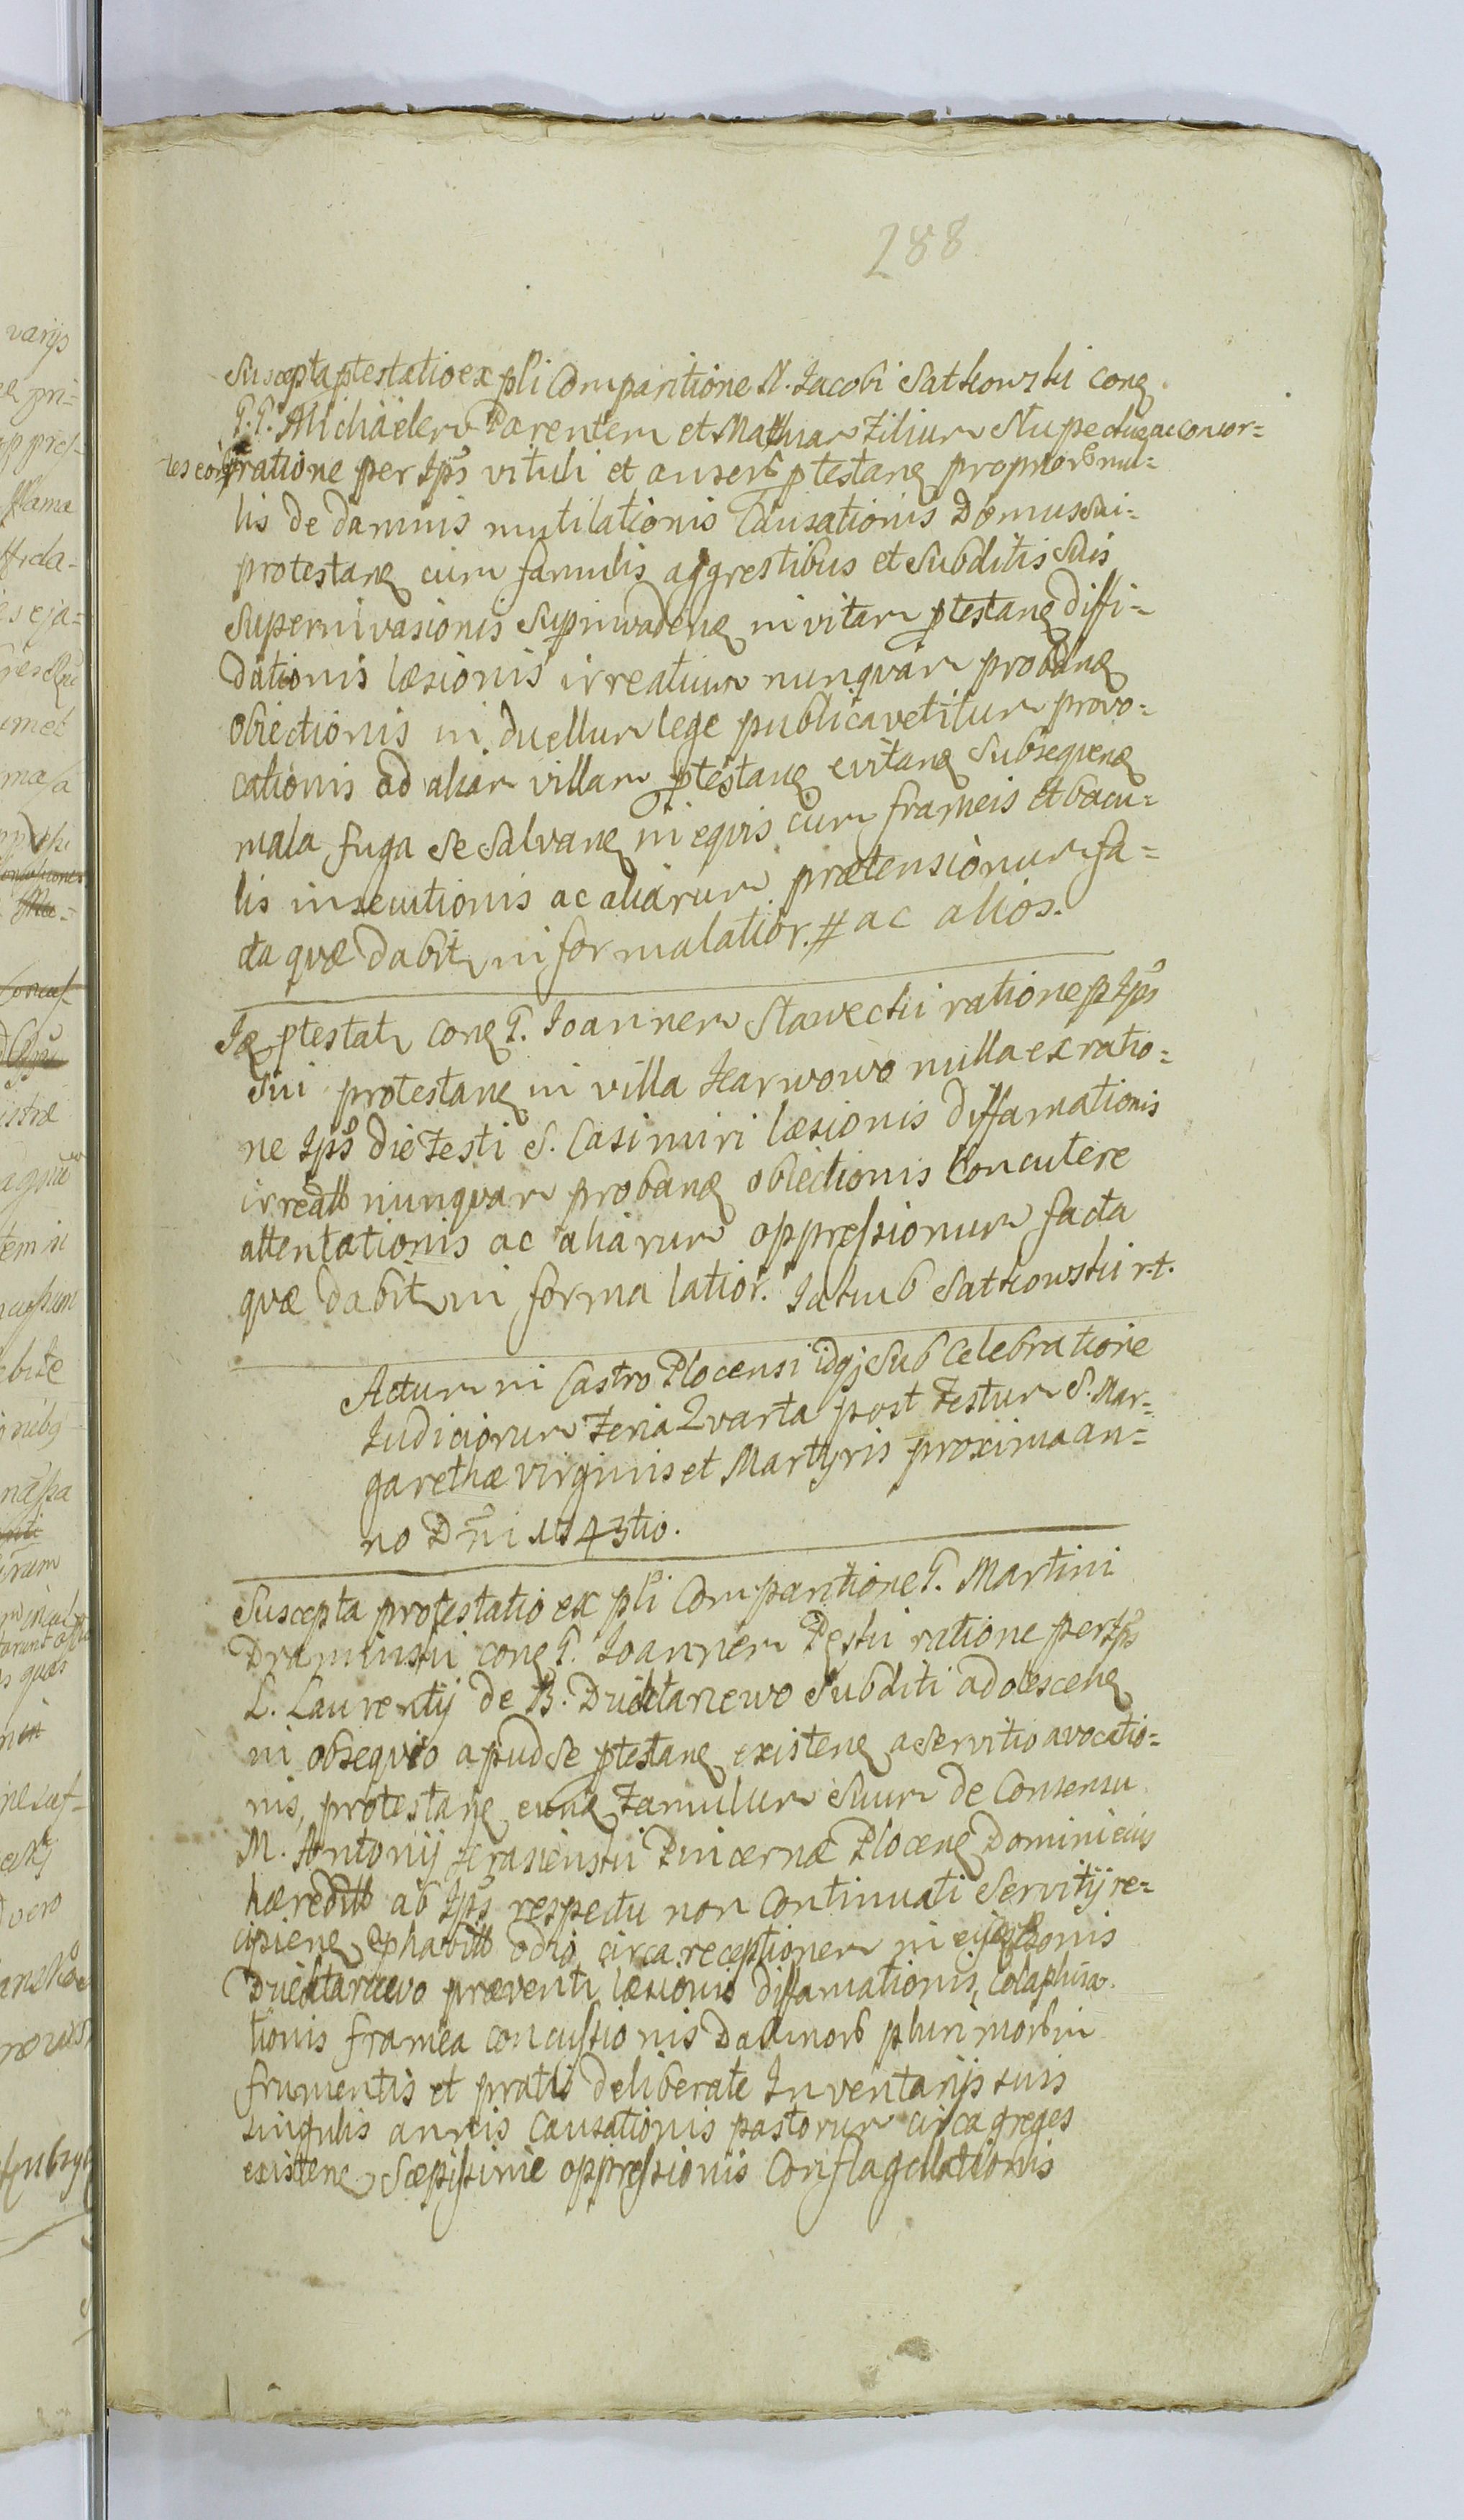 288
Suscepta ptestatio ex pli Comparitione N. Iacobi Satkowski conq
T.T. Michäelem Parentem et Mathiam Filium Slupeckie ac consor-
tes eor ratione per Ips vituli et anserb ptestanq propriorb nul-
lis de damnis mutilationis Causationis Domus Sui-
protestanq cum famulis aggrestibus et Subditis Suis
Superinvasionis Suprinvadenq invitam ptestanq diffi-
dationis læsionis irreatuum nunqvam probanq
obiectionis in duellum lege publica vetitum provo-
cationis ad aliam villam ptestanq evitanq Subsequenq
mala fuga se Salvanq in equis cum frameis et bacu-
lis insecutionis ac aliarum prætensionum fa-
cta qvæ dabitr in forma latior. # ac alios.
Iq ptestatr conq T. Ioannem Slawecki ratione p Ips
Sui protestanq in villa Karwowo nulla ex ratio-
ne Ips die Festi S. Casimiri læsionis diffamationis
irreatb nunqvam probanq obiectionis Concutere
attentationis ac aliarum oppressionum facta
qvæ dabitr in forma latior. Iakub Satkowski r.t.
Actum in Castro Plocensi idqj Sub Celebratione
Iudiciorum Feria Qvarta post Festum S. Mar-
garethæ virginis et Martyris proxima an-
no Dni 1743tio.
Suscepta protestatio ex pli Comparitione T. Martini
Draminski conq T. Ioannem Pęski ratione per Ips
L. Laurentij de B. Subditi adolescenq
in obseqvio apud se ptestanq existenq a Servitio avocatio-
nis, protestanq eunq Famulum Suum de Consensu
M. Antonij Krasienski Pincernæ Plocenq Domini eius
hæreditb ab Ips respectu non Continuati Servitij re-
cipienq odio circa receptionem in Bonis
præventi læsionis diffamationis, Colaphiza-
tionis framea concussionis Damnorb plurimorb in
frumentis et pratis deliberate Inventarijs suis
singulis annis Causationis pastorum circa greges
existenq Sæpissime oppressionis Conflagellationis